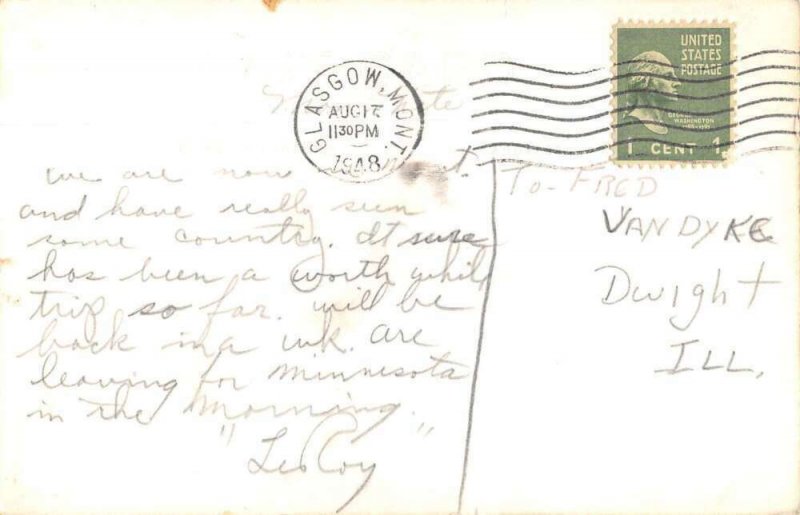 GLASGOW, MONT.
AUG 17
11 30 PM
1948
UNITED
STATES
POSTAGE
GEORGE
WASHINGTON
1 CENT 1
we are now
and have really seen
some country. It sure
has been a worth while
trip so far. will be
back in a wk. are
leaving for minnesota
in the morning.
"LeRoy"
To - FRED
VAN DYKE
Dwight
ILL.